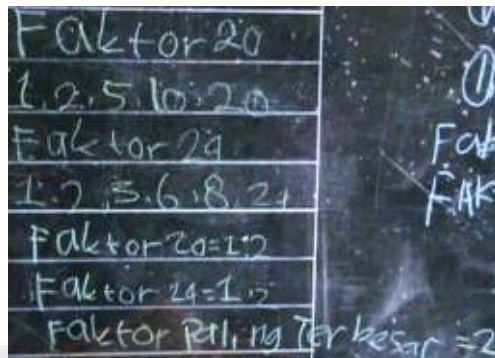 Faktor 20
1,2,5,10,20
Faktor 24
1,2,3,6,8,24
Faktor 20=1,2
Faktor 24=1,2
Faktor Paling Terbesar =2
Fak
FAK